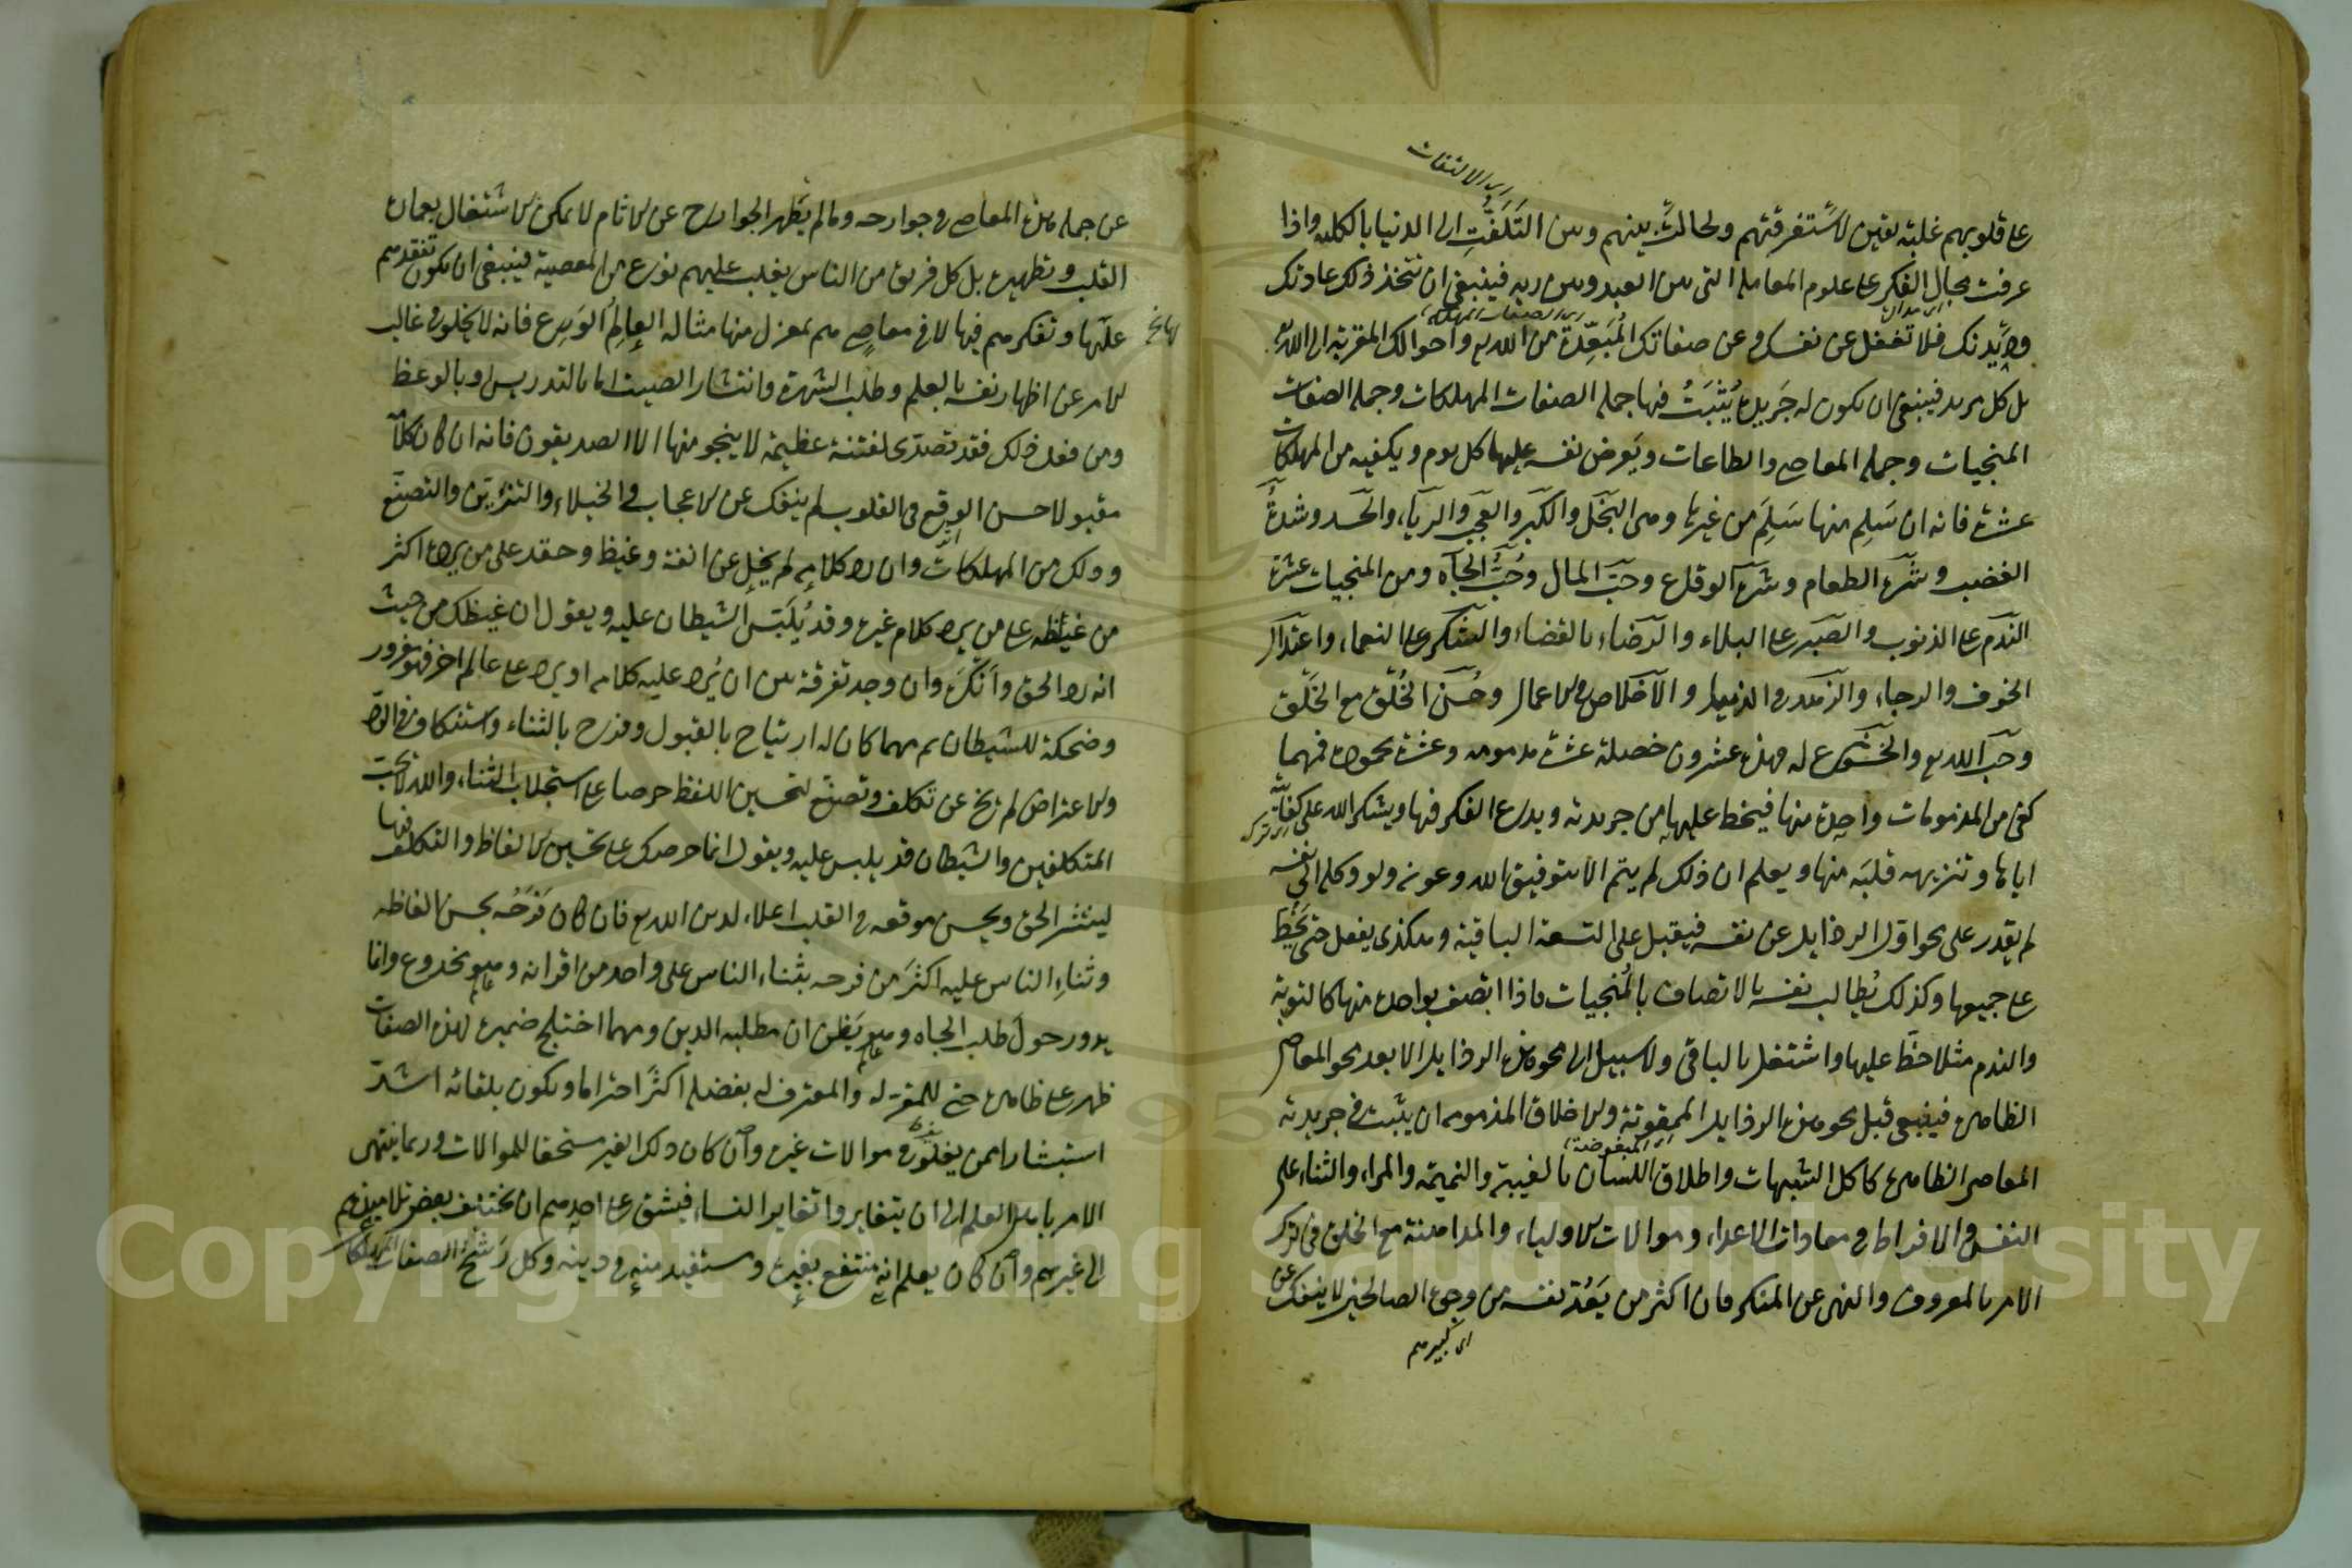 اى الالتفات
على قلوبهم غلبة يقين لاستغرقتهم ولحالت بينهم وبين التلفت الى الدنيا بالكلية واذا
عرفت مجال الفكر على علوم المعاملة التى بين العبد وبين ربه فينبغى ان تتخذ ذلك عادتك
اى الصفات المهلكة
وديدنك فلا تغفل عن نفسك وعن صفاتك المبعدة من الله تع واحوالك المقربة الى الله تع
بل كل مريد فينبغى ان يكون له جريدة يثبت فيها جملة الصفات المهلكات وجملة الصفات
المنجيات وجملة المعاصى والطاعات ويعرض نفسه عليها كل يوم ويكفيه من المهلكات
عشرة فانه ان سلم منها سلم من غيرها وهى البخل والكبر والعجب والرياء والحسد وشدة
الغضب وشره الطعام وشره الوقاع وحب المال وحب الجاه ومن المنجيات عشرة
الندم على الذنوب والصبر على البلاء والرضاء بالقضاء والشكر على النعماء واعتدال
الخوف والرجاء والزهد فى الدنيا والاخلاص فى الاعمال وحسن الخلق مع الخلق
وحب الله تع والخشوع له فهذه عشرون خصلة عشرة مذمومة وعشرة محمودة فمهما
كفى من المذمومات واحدة منها فيخط عليها من جريدته ويدع الفكر فيها ويشكر الله على كفايته
اياها وتنزيهه قلبه منها ويعلم ان ذلك لم يتم الا بتوفيق الله وعونه ولو وكله الى نفسه
لم يقدر على محو اقل الرذايل عن نفسه فيقبل على التسعة الباقية وهكذى يفعل حتى يخط
على جميعها وكذلك يطالب نفسه بالاتصاف بالمنجيات فاذا اتصف بواحدة منها كالتوبة
والندم مثلا خط عليها واشتغل بالباقى ولا سبيل الى محو هذه الرذايل الا بعد محو المعاصى
الظاهرة فينبغى قبل محو هذه الرذايل الممقوتة والاخلاق المذمومة ان يثبت فى جريدته
المبغوضة
المعاصى الظاهرة كاكل الشبهات واطلاق اللسان بالغيبة والنميمة والمراء والثناء على
النفس والافراط فى معادات الاعداء وموالات الاولياء والمداهنة مع الخلق فى ترك
الامر بالمعروف والنهى عن المنكر فان اكثر من يعد نفسه من وجوه الصالحين لا ينفك عن
اى كبيرهم
عن جملة هذه المعاصى فى جوارحه وما لم يطهر الجوارح عن الاثام لا يمكن الاشتغال بعمارة
القلب وتطهيره بل كل فريق من الناس يغلب عليهم نوع من المعصية فينبغى ان يكون تفقدهم
عليها وتفكرهم فيها لا فى معاص هم بمعزل منها مثاله العالم الورع فانه لا يخلو فى غالب
الامر عن اظهار نفسه بالعلم وطلب الشهرة وانتشار الصيت اما بالتدريس او بالوعظ
ومن فعل ذلك فقد تصدى لفتنة عظيمة لا ينجو منها الا الصديقون فانه ان كان كلامه
مقبولا حسن الوقع فى القلوب لم ينفك عن الاعجاب والخيلاء والتزين والتصنع
وذلك من المهلكات وان رد كلامه لم يخل عن انفة وغيظ وحقد على من يرده اكثر
من غيظه على من يرد كلام غيره وقد يلبس الشيطان عليه ويقول ان غيظك من حيث
انه رد الحق وانكره وان وجد تفرقة بين ان يرد عليه كلامه او يرد على عالم اخر فهو مغرور
وضحكة للشيطان ثم مهما كان له ارتياح بالقبول وفرح بالثناء واستنكاف من الرد
والاعراض لم يخل عن تكلف وتصنع لتحسين اللفظ حرصا على استجلاب الثناء والله لا يحب
المتكلفين والشيطان قد يلبس عليه ويقول انما حرصك على تحسين الالفاظ والتكلف فيها
لينتشر الحق ويحسن موقعه فى القلب اعلاء لدين الله تع فان كان فرحه بحسن الفاظه
وثناء الناس عليه اكثر من فرحه بثناء الناس على واحد من اقرانه فهو مخدوع وانما
يدور حول طلب الجاه وهو يظن ان مطلبه الدين ومهما اختلج ضميره لهذه الصفات
ظهر على ظاهره حتى للموقر له والمعترف له بفضله اكثر احتراما ويكون بلقائه اشد
استبشارا ممن يغلو فى موالات غيره وان كان ذلك الغير مستحقا للموالات وربما ينتهى
الامر باهل العلم الى ان يتغايروا تغاير النساء فيشق على احدهم ان يختلف بعض تلاميذهم
الى غيرهم وان كان يعلم انه منتفع بغيره ومستفيد منه فى دينه وكل رشح الصفات المهلكات
Copyright © King Saud University
1957